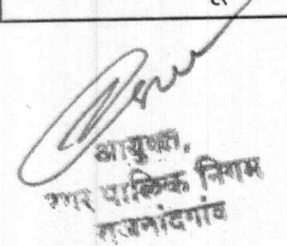 आयुक्त,
नगर पालिक निगम
राजनांदगांव